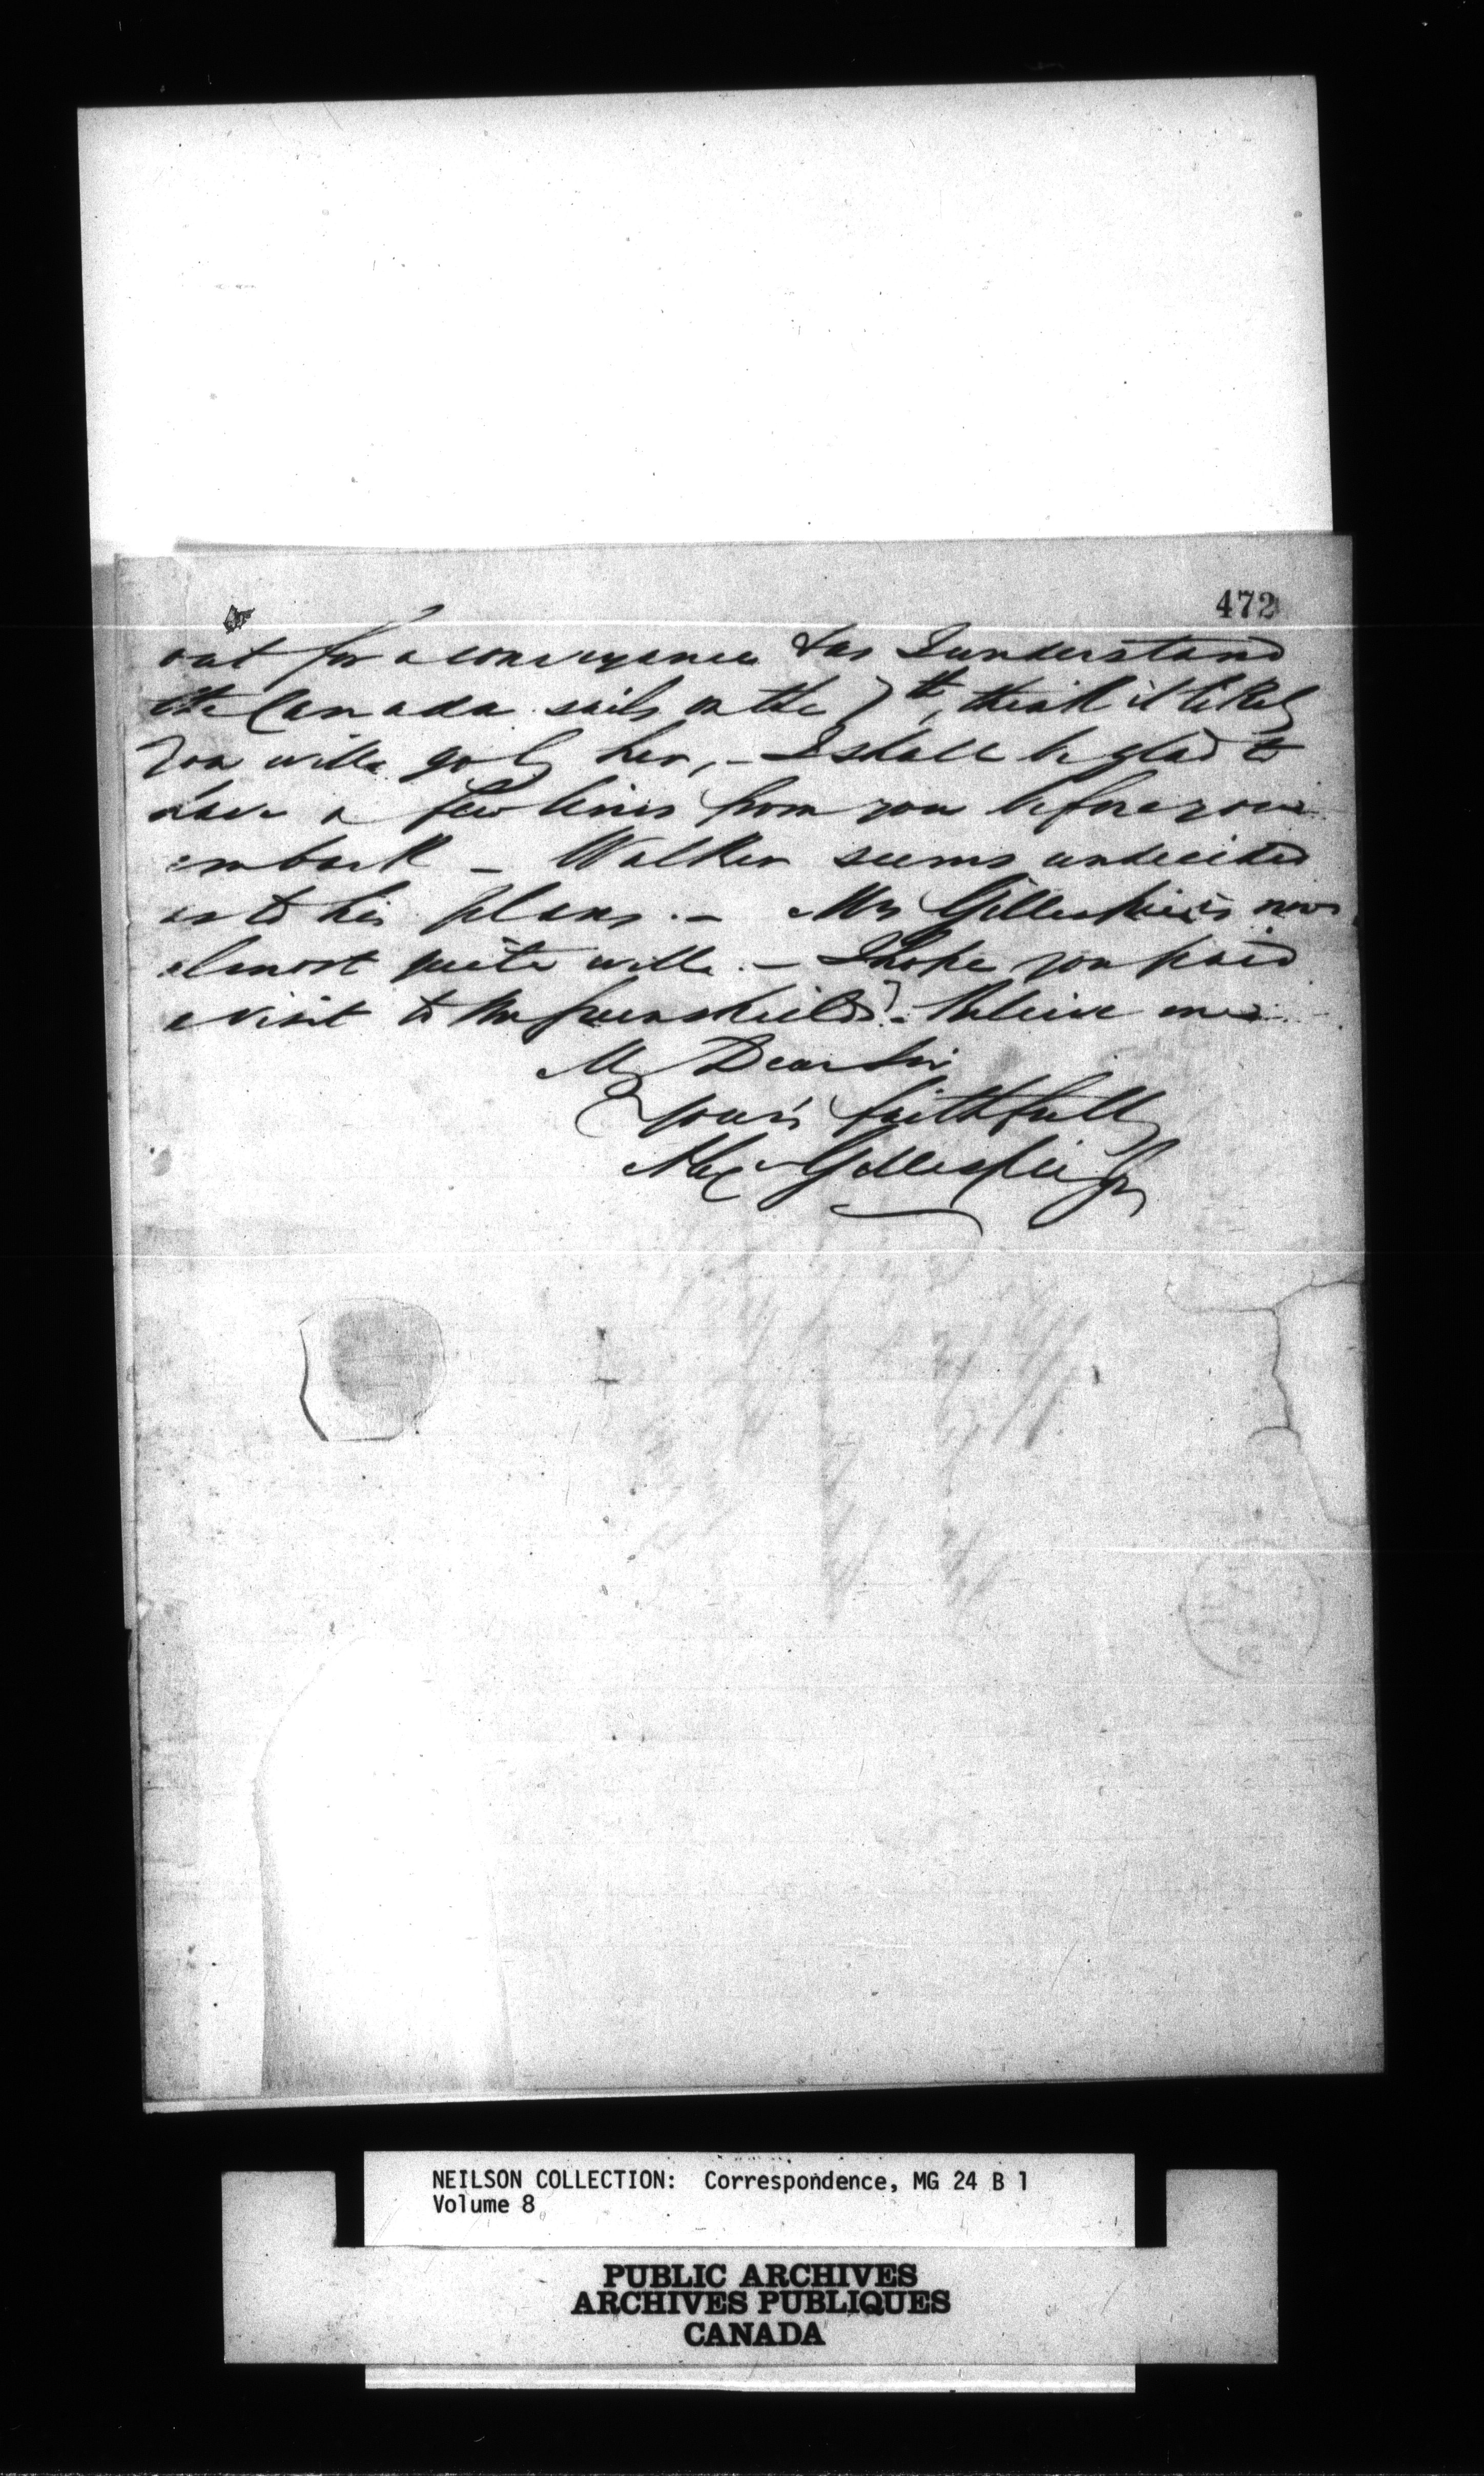 472
out for a conveyance & as I understand
the Canada sails on the 7th, think it likely
you will go by her, – I shall be glad to
have a few lines from you before you
embark – Walker seems undecided
as to his plans. – Mrs Gillespie is now
almost quite well. – I hope you paid
a visit to Mr Greenshields? – Believe me
My Dear Sir
Yours faithfully
Alex Gillespie Jr
NEILSON COLLECTION: Correspondence, MG 24 B 1
Volume 8
PUBLIC ARCHIVES
ARCHIVES PUBLIQUES
CANADA